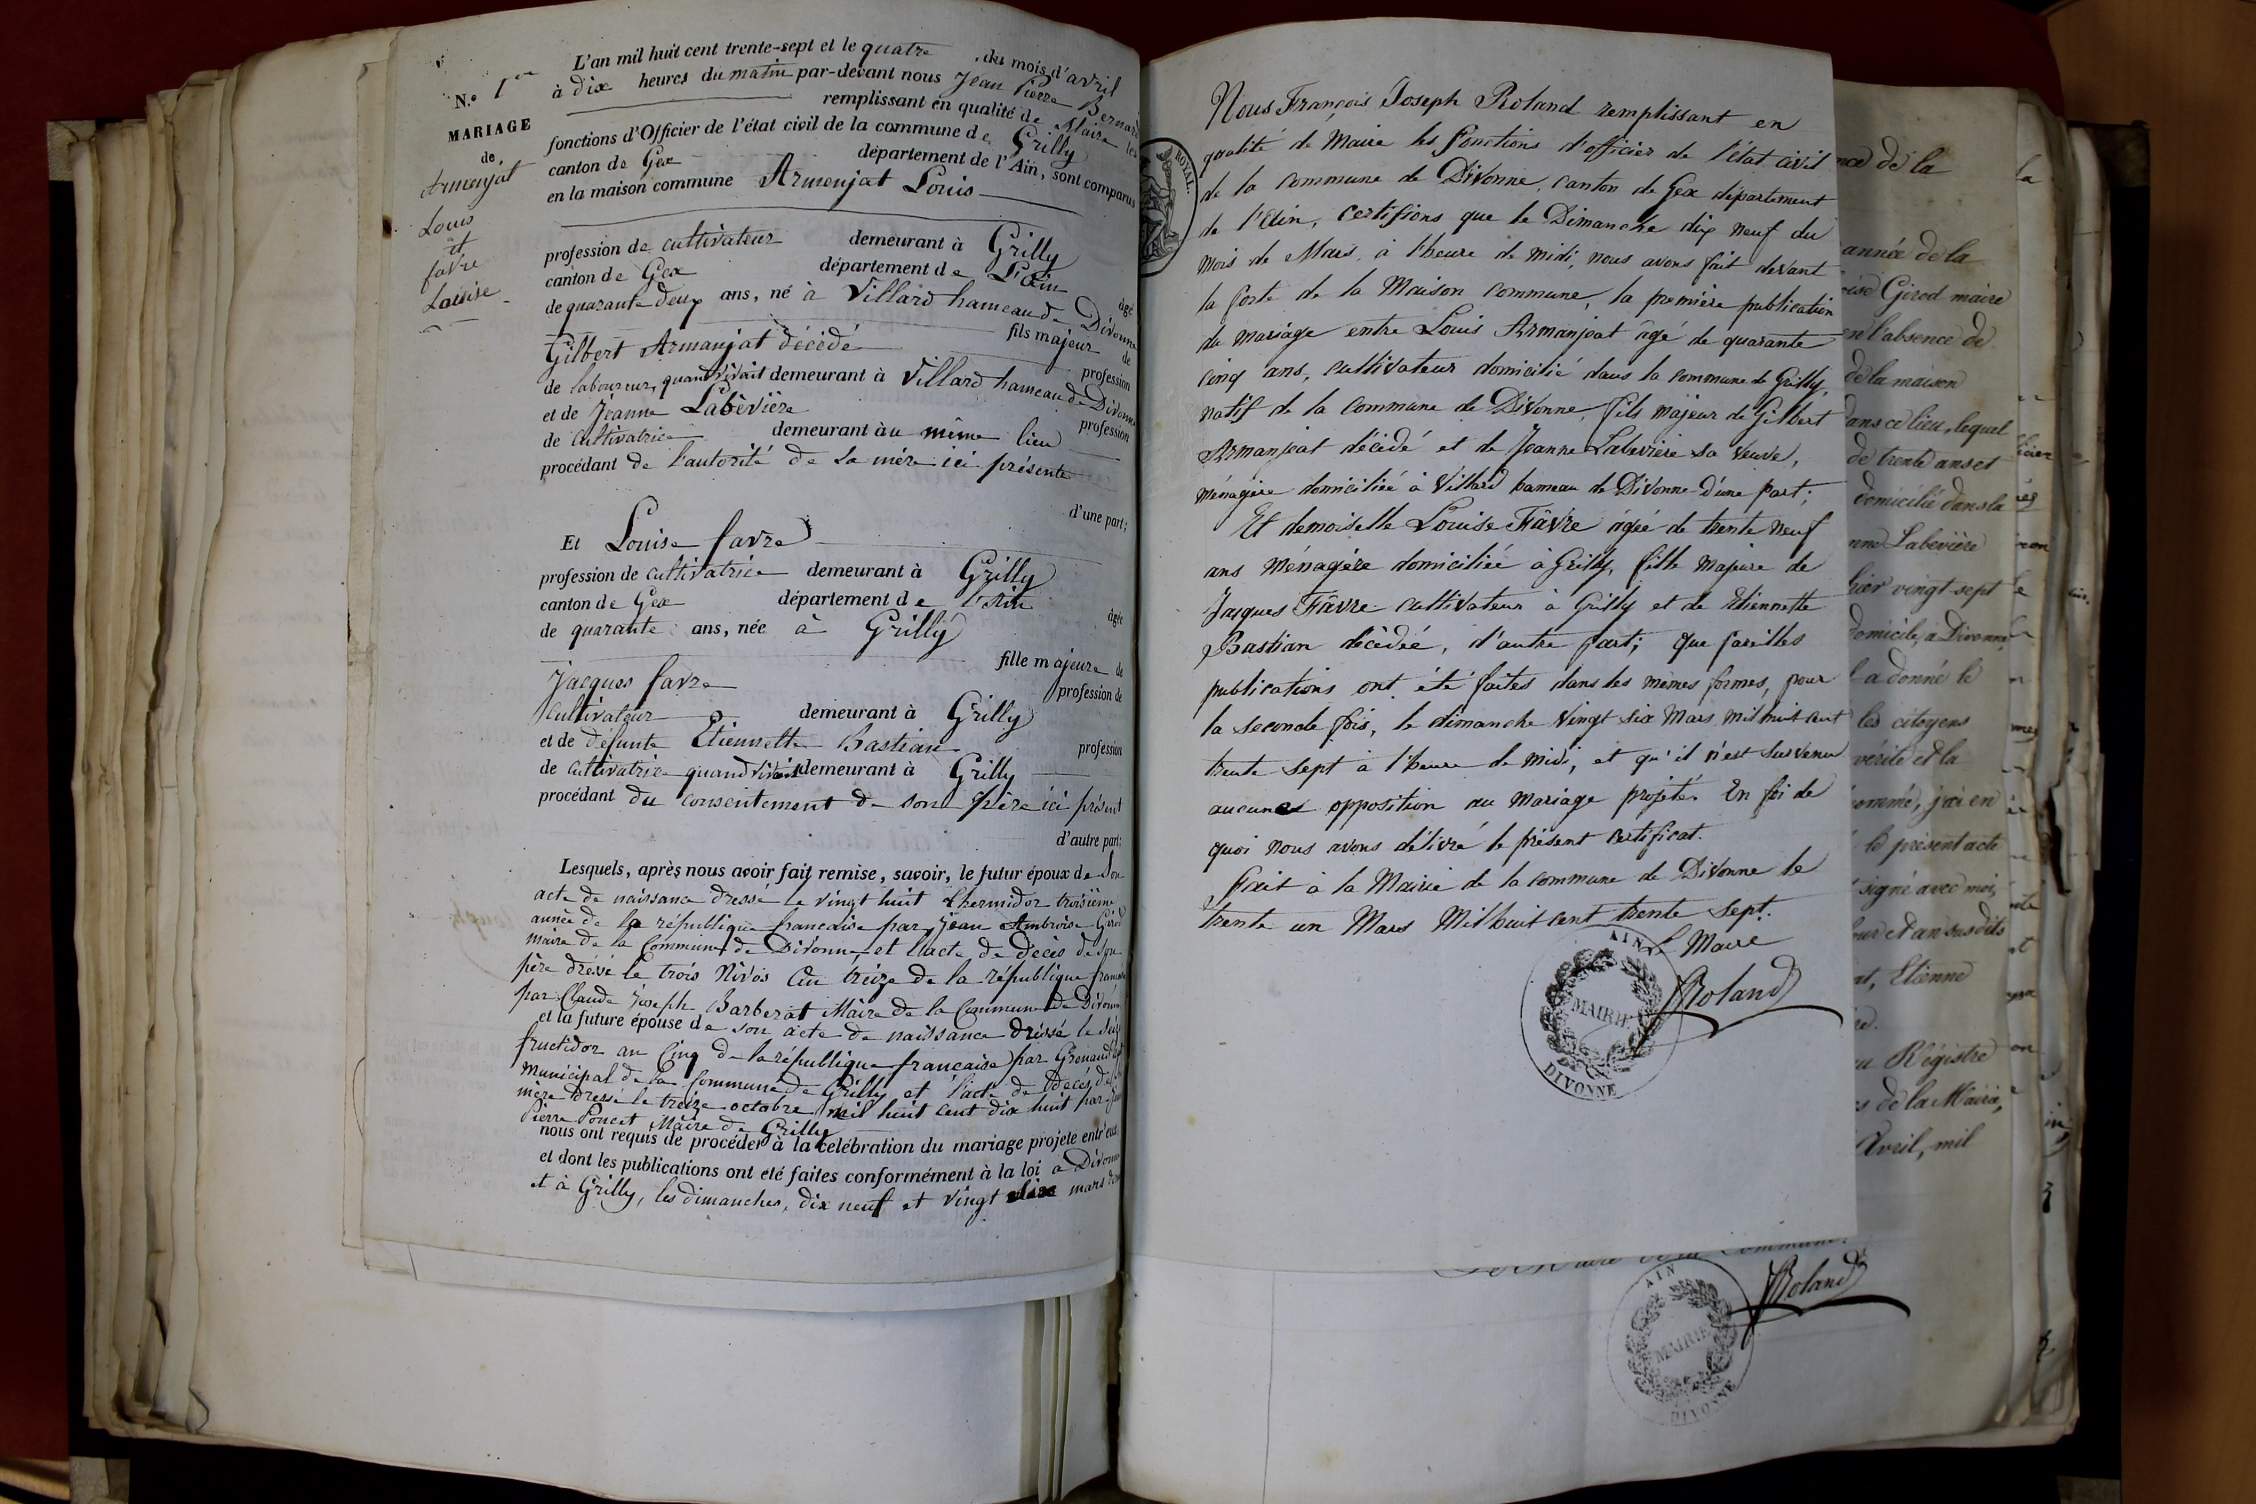 N.º 1er
MARIAGE
de
Armenjat
Louis
et
favre
Louise
L'an mil huit cent trente-sept et le quatre du mois d'avril
à dix heures du matin par-devant nous Jean Pierre Bernard
remplissant en qualité de Maire les
fonctions d'Officier de l'état civil de la commune de Grilly
canton de Gex département de l'Ain, sont comparus
en la maison commune Armenjat Louis
profession de cultivateur demeurant à Grilly
canton de Gex département de L'ain âgé
de quarante deux ans, né à Villard hameau de Divonne
fils majeur de
Gilbert Armanjat décédé profession
de laboureur, quand vivait demeurant à Villard hameau de Divonne
et de Jeanne Labèvière profession
de cultivatrice demeurant au même lieu
procédant de l'autorité de la mère ici présente
d'une part;
Et Louise favre
profession de cultivatrice demeurant à Grilly
canton de Gex département de l'Ain âgée
de quarante ans, née à Grilly
fille majeure de
Jacques favre profession de
cultivateur demeurant à Grilly
et de défunte Etiennette Bastian profession
de cultivatrice quand vivait demeurant à Grilly
procédant du consentement de son père ici présent
d'autre part;
Lesquels, après nous avoir fait remise, savoir, le futur époux de Son
acte de naissance dressé le vingt huit thermidor troisième
année de la république francaise par Jean Ambroise Girod
maire de la Commune de Divonne et l'acte de décès de son
père dréssé le trois Nivôs an treize de la république
par Claude Joseph Barberat Maire de la Commune de Divonne
et la future épouse de son acte de naissance dréssé le
fructidor an Cinq de la république francaise par Grenaud
municipal de la Commune de Grilly et l'acte de décès de
mère dréssé le treize octobre mil huit cent dix huit par
Pierre Poncet Maire de Grilly
nous ont requis de procéder à la célébration du mariage projeté entr'eux
et dont les publications ont été faites conformément à la loi a Divonne
et à Grilly, les dimanches, dix neuf et vingt mars
ROYAL.
Nous François Joseph Roland remplissant en
qualité de Maire les fonctions d'officier de l'état civil
de la commune de Divonne, canton de Gex département
de l'Ain, certifions que le Dimanche dix neuf du
mois de Mars, à l'heure de midi, nous avons fait devant
la porte de la Maison commune, la première publication
du mariage entre Louis Armanjoat âgé de quarante
cinq ans, cultivateur domicilié dans la commune de Grilly,
natif de la commune de Divonne, fils majeur de Gilbert
Armanjoat décédé et de Jeanne Labeviere sa veuve,
ménagère domiciliée à Villard hameau de Divonne d'une part;
Et demoiselle Louise Fâvre âgée de trente neuf
ans ménagère domiciliée à Grilly, fille majeure de
Jacques Fâvre cultivateur à Grilly et de Etiennette
Bastian décédée, d'autre part; que pareilles
publications ont été faites dans les mêmes formes, pour
la seconde fois, le dimanche vingt six Mars mil huit cent
trente sept à l'heure de midi, et qu'il n'est survenu
aucune opposition au mariage projeté. En foi de
quoi nous avons délivré le présent certificat.
Fait à la Mairie de la commune de Divonne le
trente un Mars mil huit cent trente sept.
Le Maire
Roland
AIN
MAIRIE
DIVONNE
de la
année de la
Girod maire
en l'absence de
de la maison
dans ce lieu, lequel
de trente ans et
domicilié dans la
Labevière
hier vingt-sept
domicile, à Divonne
a donné le
les citoyens
vérité et la
nommé, j'ai en
le présent acte
signé avec moi,
jour et an susdits
Etienne
Régistre
de la Mairie,
Avril, mil
Roland
AIN
MAIRIE
DIVONNE